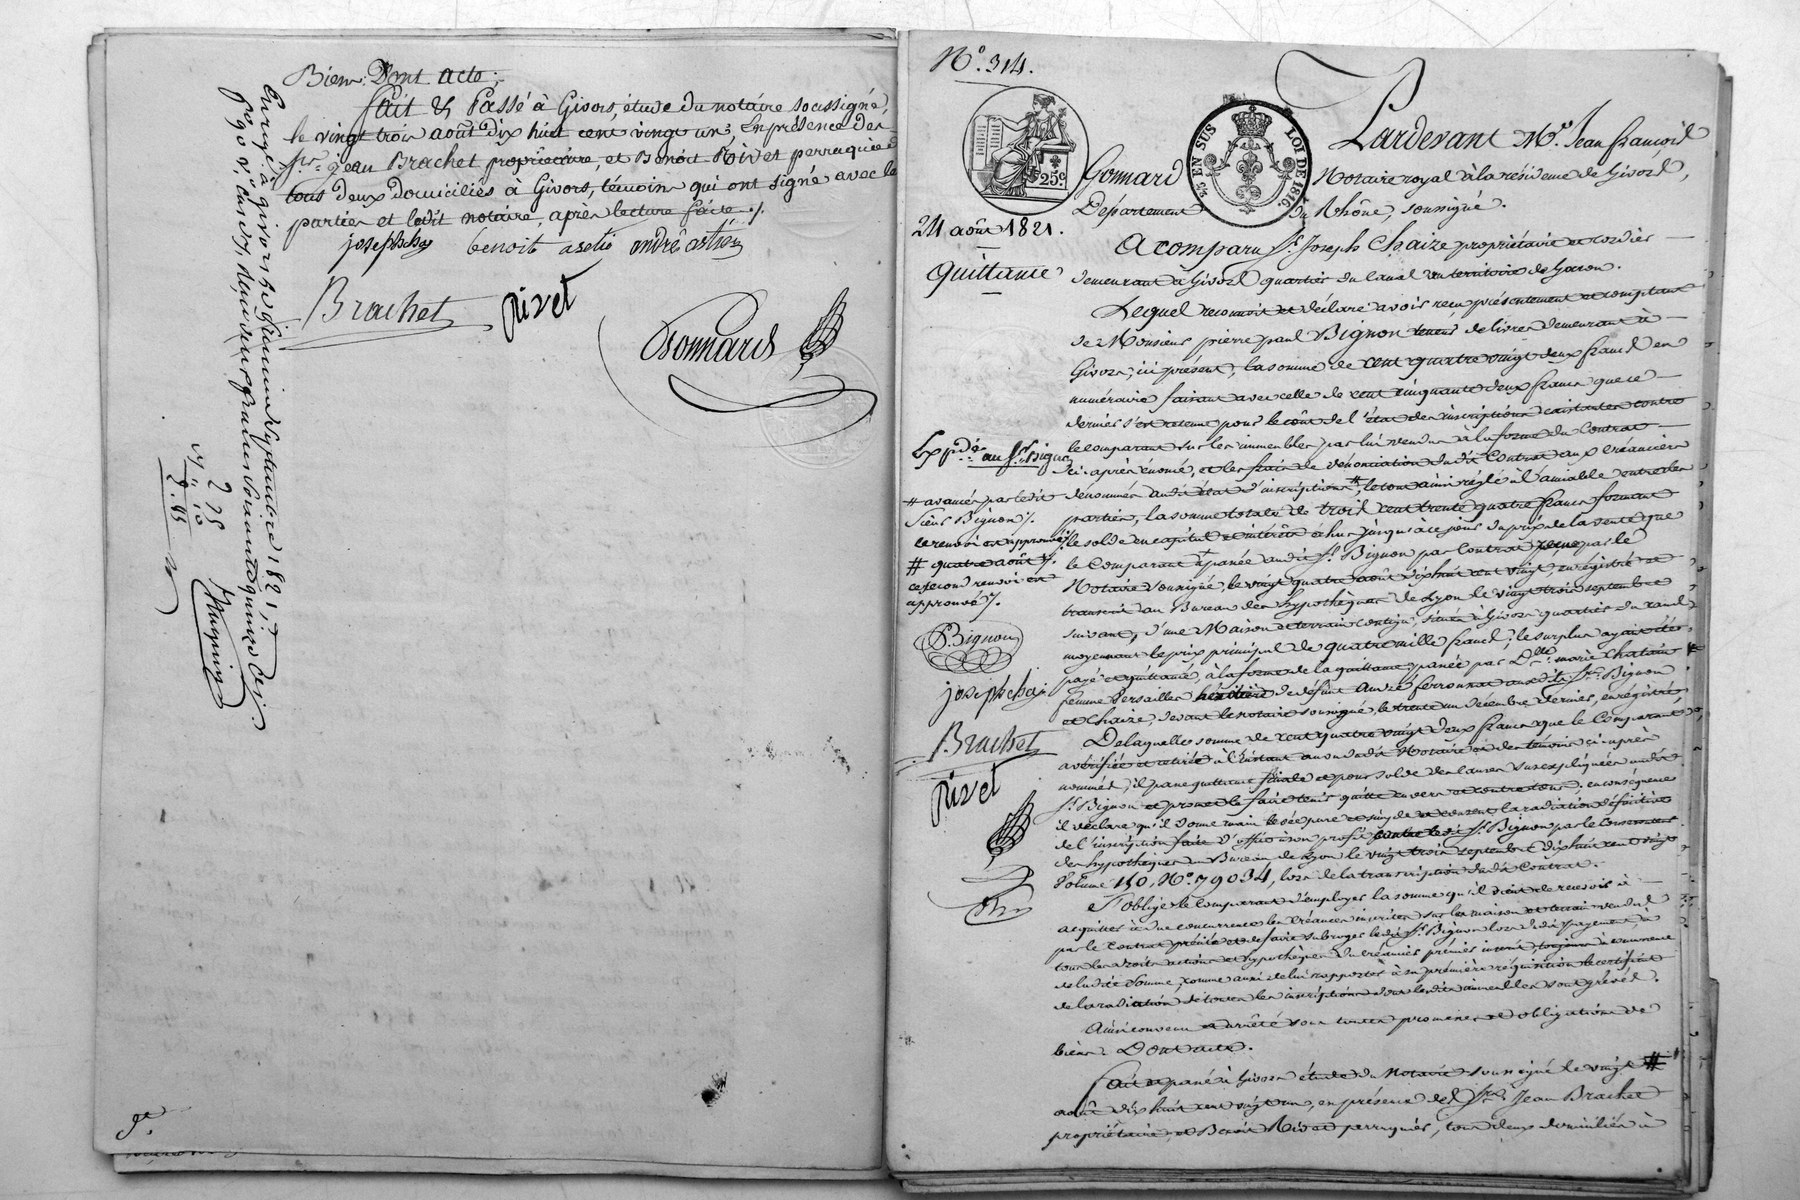 Biens. Dont acte.
fait & Passé à Givors, étude du notaire soussigné,
le vingt trois août dix huit cent vingt un, En présence des
Srs. Jean Brachet propriétaire, et Benoit Rivet perruquier
tous deux domiciliés à Givors, témoins qui ont signé avec les
parties et ledit notaire, après lecture faite ./.
joseph benoit andré
Brachet Rivet
Gonnard
Enregé. à givors le 1821
2 75
10
ge.
No. 314.
25 EN SUS
LOI DE 1816
25c.
Pardevant Me. Jean François
Gonnard Notaire royal à la résidence de Givors,
Département du Rhône, soussigné.
24 août 1821.
Quittance
A comparu Sr. Joseph Chaize propriétaire et cordier
demeurant à Givors quartier du canal
Lequel reconnoit et déclare avoir reçu présentement et comptant
de Monsieur pierre paul Bignon teneur de livres demeurant à
Givors, ici présent, la somme de cent quatre vingt deux francs en
numéraire faisant avec celle de cent cinquante deux francs que ce
dernier s'est retenue pour le coût de l'état des inscriptions existantes contre
le comparant sur les immeubles par lui vendus à la forme du Contrat
ci-après énoncé, et les frais de dénonciation dudit Contrat aux créanciers
dénommés audit état d'inscriptions #, le tout ainsi réglé à l'amiable entre les
parties, la somme totale de trois cent trente quatre francs formant
le solde en capital et intérêts échus jusqu'à ce jour du prix de la vente que
le Comparant a passée audit Sr. Bignon par Contrat reçu par le
Notaire soussigné, le vingt quatre août dix huit cent vingt, enregistré et
transcrit au Bureau des hypothèques de Lyon le vingt trois septembre
suivant, d'une Maison et terrain contigu, situés à Givors quartier du canal
moyennant le prix principal de quatre mille francs; le surplus ayant été
payé et quittancé, à la forme de la quittance passée par Dlle. marie Chatain
femme Versailles héritière de défunt André ferronnat audit Sr. Bignon
et Chaize, devant le notaire soussigné, le trente un décembre dernier, enregistrée
Expdé. au Sr. Bignon
# avancés par ledit
Sieur Bignon ./.
le renvoi est approuvé ./.
# quatre août ./.
ce second renvoi est
approuvé ./.
P. Bignon
joseph
Brachet
Rivet
De laquelle somme de cent quatre vingt deux francs que le Comparant
a vérifiée et retirée à l'instant au vu dudit Notaire et des témoins ci-après
nommés, il passe quittance finale et pour solde des causes susexpliquées audit
Sr. Bignon et promet le faire tenir quitte envers et contre tous; en conséquence
il déclare qu'il donne main levée pure et simple et consent la radiation définitive
de l'inscription faite d'office à son profit contre ledit Sr. Bignon par le Conservateur
des hypothèques au Bureau de Lyon le vingt trois septembre dix huit cent vingt
Volume 150, No. 79034, lors de la transcription dudit Contrat.
S'oblige le Comparant d'employer la somme qu'il vient de recevoir à
acquitter à due concurrence les créances inscrites sur les maison et terrain vendus
par le Contrat précité et de faire subroger ledit Sr. Bignon lors dudit payement, à
tous les droits actions et hypothèques du créancier premier inscrit, toujours à concurrence
de ladite Somme; comme aussi de lui rapporter à sa première réquisition le certificat
de la radiation de toutes les inscriptions dont lesdits immeubles sont grévés.
Ainsi convenu et arrêté sous toutes promesses et obligations de
biens. Dont acte.
fait et passé à Givors étude du Notaire soussigné le vingt #
août dix huit cent vingt un, en présence des Srs. Jean Brachet
propriétaire, et Benoit Rivet perruquier, tous deux domiciliés à